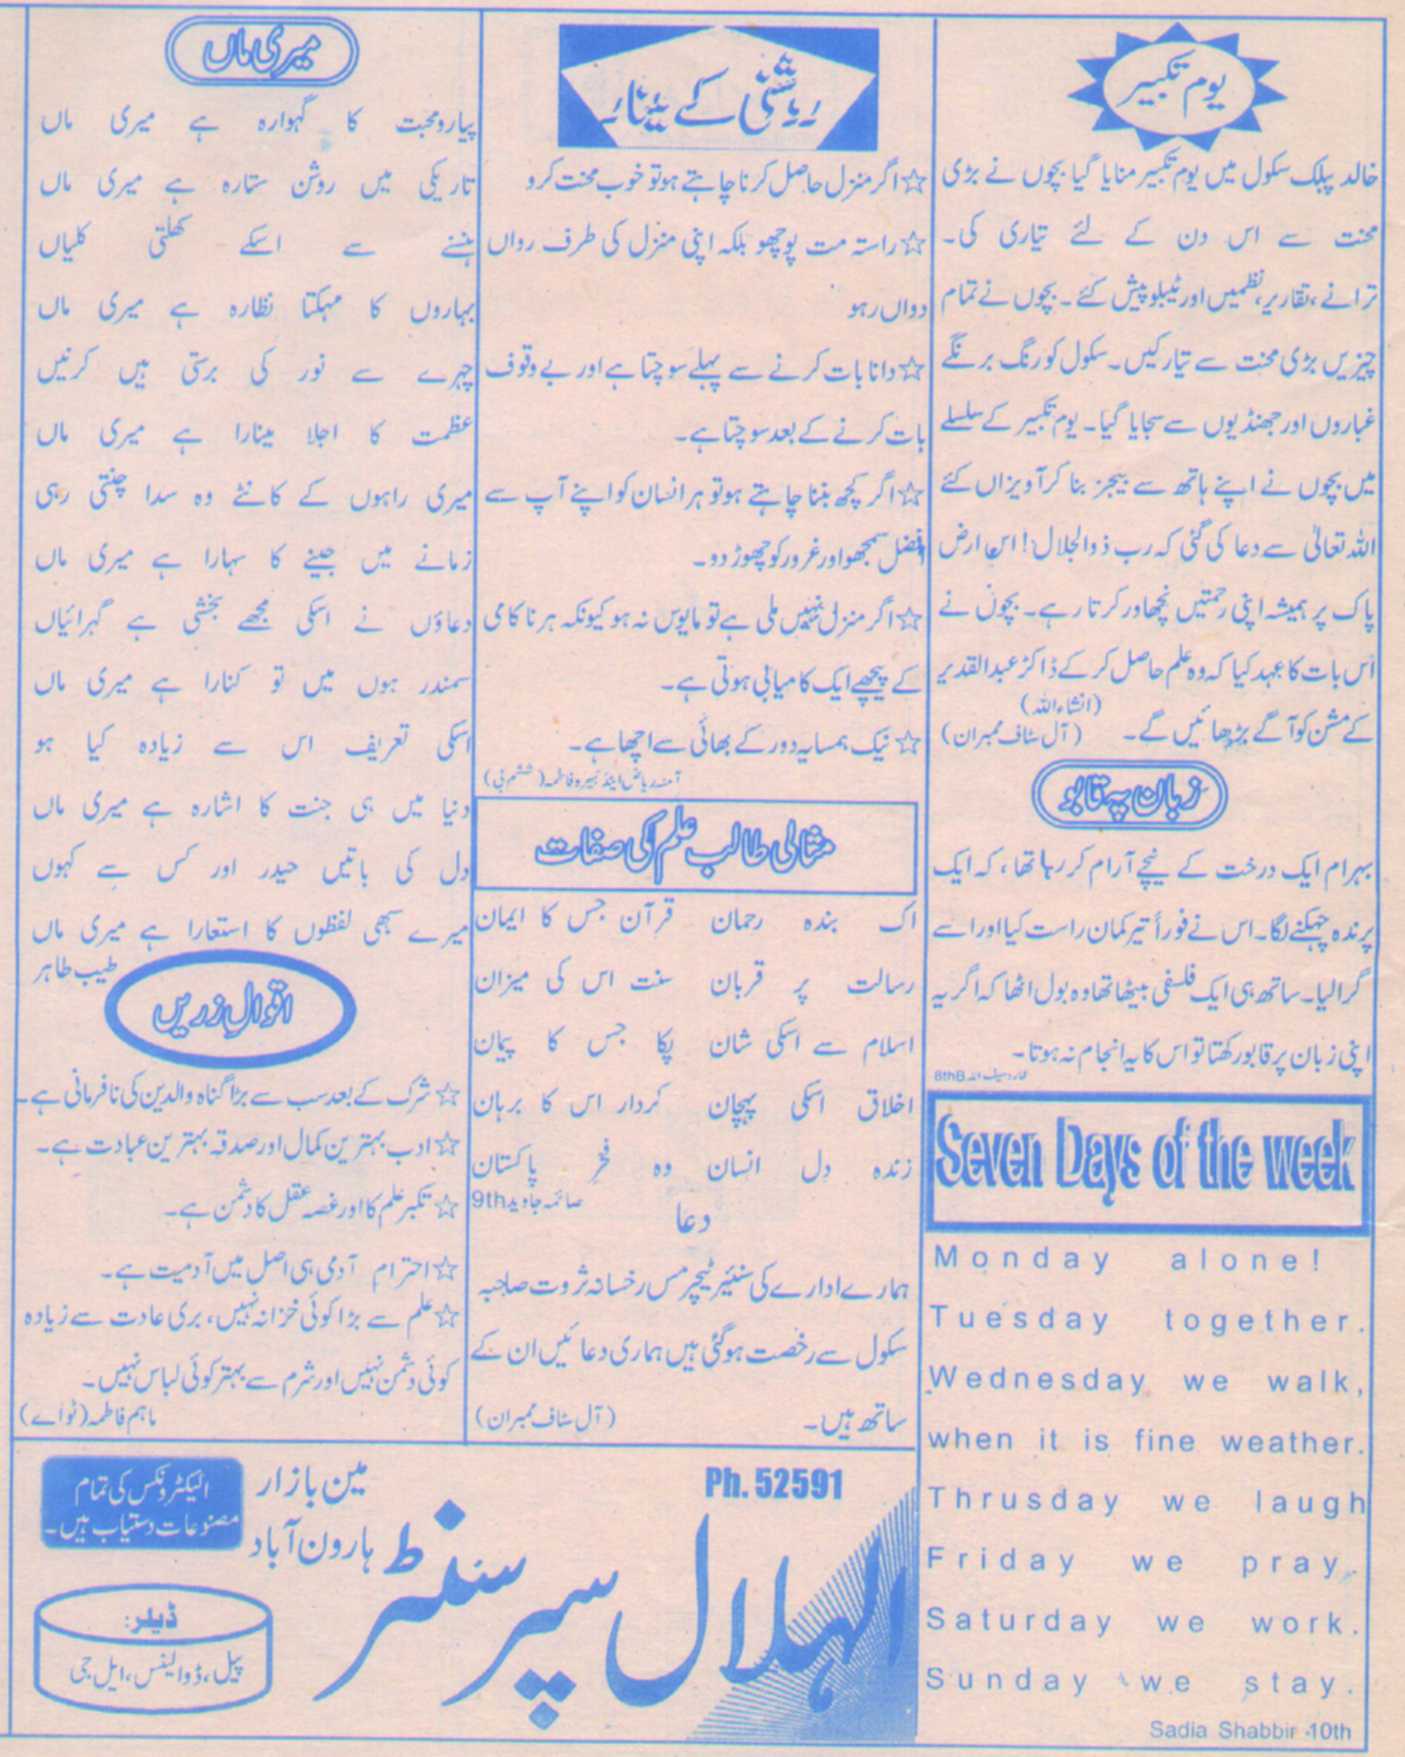 یوم تکبیر
خالد پبلک سکول میں یوم تکبیر منایا گیا بچوں نے بڑی
محنت سے اس دن کے لئے تیاری کی۔
ترانے، تقاریر، نظمیں اور ٹیبلو پیش کئے۔ بچوں نے تمام
چیزیں بڑی محنت سے تیار کیں۔ سکول کو رنگ برنگے
غباروں اور جھنڈیوں سے سجایا گیا۔ یوم تکبیر کے سلسلے
میں بچوں نے اپنے ہاتھ سے بیجز بنا کر آویزاں کئے
اللہ تعالیٰ سے دعا کی گئی کہ رب ذوالجلال! اس ارض
پاک پر ہمیشہ اپنی رحمتیں نچھاور کرتا رہے۔ بچوں نے
اس بات کا عہد کیا کہ وہ علم حاصل کر کے ڈاکٹر عبدالقدیر
کے مشن کو آگے بڑھائیں گے۔ (انشاءاللہ)
(آل سٹاف ممبران)
زبان پہ قابو
بہرام ایک درخت کے نیچے آرام کر رہا تھا، کہ ایک
پرندہ چہکنے لگا۔ اس نے فوراً تیر کمان راست کیا اور اسے
گرا لیا۔ ساتھ ہی ایک فلسفی بیٹھا تھا وہ بول اٹھا کہ اگر یہ
اپنی زبان پر قابو رکھتا تو اس کا یہ انجام نہ ہوتا۔
8thB
Seven Days of the week
Monday alone!
Tuesday together.
Wednesday we walk,
when it is fine weather.
Thrusday we laugh
Friday we pray.
Saturday we work.
Sunday we stay.
Sadia Shabbir 10th
روشنی کے مینار
☆ اگر منزل حاصل کرنا چاہتے ہو تو خوب محنت کرو
☆ راستہ مت پوچھو بلکہ اپنی منزل کی طرف رواں
دواں رہو
☆ دانا بات کرنے سے پہلے سوچتا ہے اور بے وقوف
بات کرنے کے بعد سوچتا ہے۔
☆ اگر کچھ بننا چاہتے ہو تو ہر انسان کو اپنے آپ سے
افضل سمجھو اور غرور کو چھوڑ دو۔
☆ اگر منزل نہیں ملی ہے تو مایوس نہ ہو کیونکہ ہر ناکامی
کے پیچھے ایک کامیابی ہوتی ہے۔
☆ نیک ہمسایہ دور کے بھائی سے اچھا ہے۔
فاطمہ (ششم بی)
مثالی طالب علم کی صفات
اک بندہ رحمان قرآن جس کا ایمان
رسالت پر قربان سنت اس کی میزان
اسلام سے اسکی شان پکا جس کا پیمان
اخلاق اسکی پہچان کردار اس کا برہان
زندہ دل انسان وہ فخر پاکستان
صائمہ جاوید 9th
دعا
ہمارے ادارے کی سنئیر ٹیچر مس رخسانہ ثروت صاحبہ
سکول سے رخصت ہو گئی ہیں ہماری دعائیں ان کے
ساتھ ہیں۔ (آل سٹاف ممبران)
میری ماں
پیار و محبت کا گہوارہ ہے میری ماں
تاریکی میں روشن ستارہ ہے میری ماں
ہنسنے سے اسکے کھلتی کلیاں
بہاروں کا مہکتا نظارہ ہے میری ماں
چہرے سے نور کی برستی ہیں کرنیں
عظمت کا اجلا مینارا ہے میری ماں
میری راہوں کے کانٹے وہ سدا چنتی رہی
زمانے میں جینے کا سہارا ہے میری ماں
دعاؤں نے اسکی مجھے بخشی ہے گہرائیاں
سمندر ہوں میں تو کنارا ہے میری ماں
اسکی تعریف اس سے زیادہ کیا ہو
دنیا میں ہی جنت کا اشارہ ہے میری ماں
دل کی باتیں حیدر اور کس سے کہوں
میرے سبھی لفظوں کا استعارا ہے میری ماں
طیب طاہر
اقوال زریں
☆ شرک کے بعد سب سے بڑا گناہ والدین کی نافرمانی ہے۔
☆ ادب بہترین کمال اور صدقہ بہترین عبادت ہے۔
☆ تکبر علم کا اور غصہ عقل کا دشمن ہے۔
☆ احترام آدمی ہی اصل میں آدمیت ہے۔
☆ علم سے بڑا کوئی خزانہ نہیں، بری عادت سے زیادہ
کوئی دشمن نہیں اور شرم سے بہتر کوئی لباس نہیں۔
ماہم فاطمہ (ٹو اے)
Ph. 52591
الہلال سپر سنٹر
مین بازار
ہارون آباد
الیکٹرونکس کی تمام
مصنوعات دستیاب ہیں۔
ڈیلر:
پیل، ڈوالینس، ایل جی